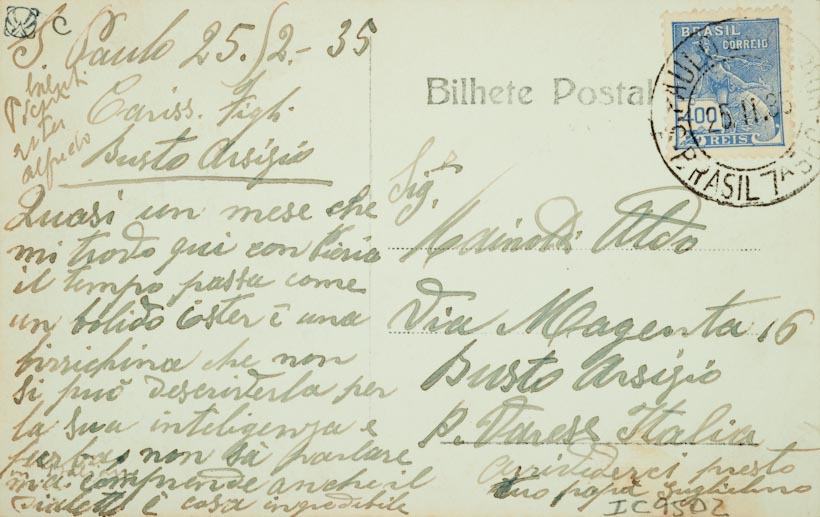 C
S Paulo 25./2.- 35
Cariss. Figli.
Busto Arsizio
Quasi un mese che
mi trovo qui con Piera
il tempo passa come
un bolido Ester è una
birrichina che non
si può descriverla per
la sua inteligenza e
furba, non sà parlare
ma comprende anche il
dialetto è cosa incredibile
Ester
Alfredo
Bilhete Postal
BRASIL
CORREIO
400
REIS
S. PAULO
BRASIL 7ª SEC
Sig.
Aldo
Via Magenta 16
Busto Arsizio
P. Varese Italia
arrivederci presto
tuo papà Guglielmo
IC9502